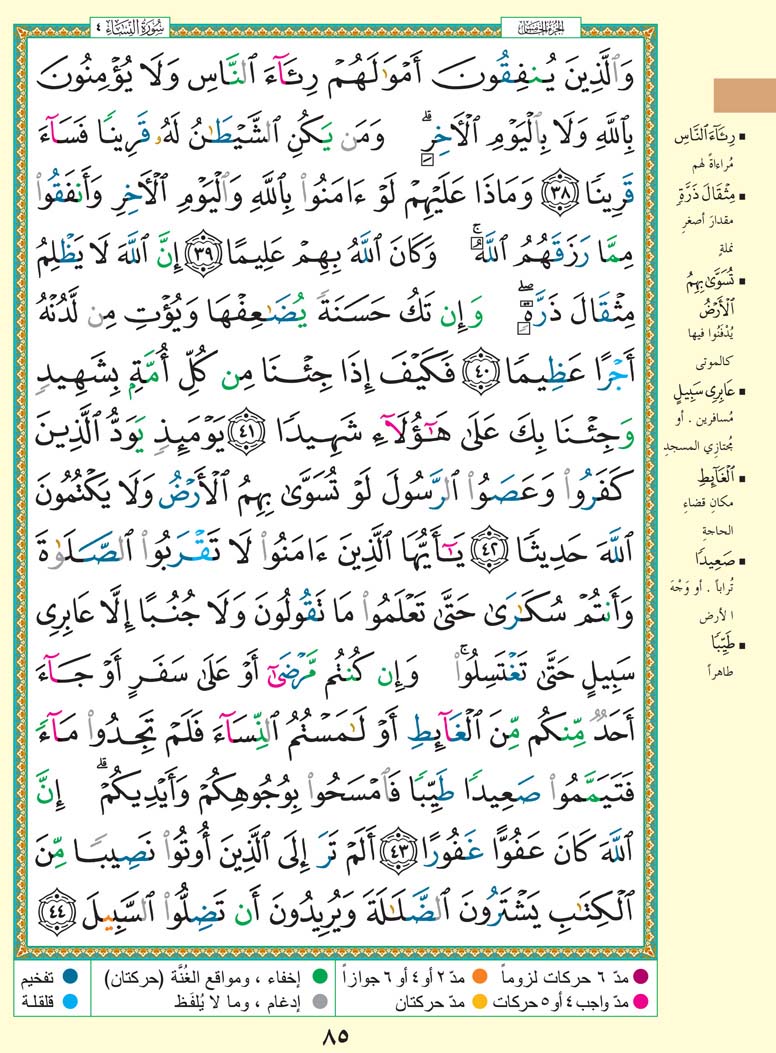 سُورَةُ النِّسَاءِ ٤
الجُزءُ الخَامِسُ
وَٱلَّذِينَ يُنفِقُونَ أَمْوَٰلَهُمْ رِئَآءَ ٱلنَّاسِ وَلَا يُؤْمِنُونَ
بِٱللَّهِ وَلَا بِٱلْيَوْمِ ٱلْأَخِرِ ۗ وَمَن يَكُنِ ٱلشَّيْطَٰنُ لَهُۥ قَرِينًا فَسَآءَ
قَرِينًا ٣٨ وَمَاذَا عَلَيْهِمْ لَوْ ءَامَنُوا۟ بِٱللَّهِ وَٱلْيَوْمِ ٱلْأَخِرِ وَأَنفَقُوا۟
مِمَّا رَزَقَهُمُ ٱللَّهُ ۚ وَكَانَ ٱللَّهُ بِهِمْ عَلِيمًا ٣٩ إِنَّ ٱللَّهَ لَا يَظْلِمُ
مِثْقَالَ ذَرَّةٍ ۖ وَإِن تَكُ حَسَنَةً يُضَٰعِفْهَا وَيُؤْتِ مِن لَّدُنْهُ
أَجْرًا عَظِيمًا ٤٠ فَكَيْفَ إِذَا جِئْنَا مِن كُلِّ أُمَّةٍۭ بِشَهِيدٍ
وَجِئْنَا بِكَ عَلَىٰ هَٰٓؤُلَآءِ شَهِيدًا ٤١ يَوْمَئِذٍ يَوَدُّ ٱلَّذِينَ
كَفَرُوا۟ وَعَصَوُا۟ ٱلرَّسُولَ لَوْ تُسَوَّىٰ بِهِمُ ٱلْأَرْضُ وَلَا يَكْتُمُونَ
ٱللَّهَ حَدِيثًا ٤٢ يَٰٓأَيُّهَا ٱلَّذِينَ ءَامَنُوا۟ لَا تَقْرَبُوا۟ ٱلصَّلَوٰةَ
وَأَنتُمْ سُكَٰرَىٰ حَتَّىٰ تَعْلَمُوا۟ مَا تَقُولُونَ وَلَا جُنُبًا إِلَّا عَابِرِى
سَبِيلٍ حَتَّىٰ تَغْتَسِلُوا۟ ۚ وَإِن كُنتُم مَّرْضَىٰٓ أَوْ عَلَىٰ سَفَرٍ أَوْ جَآءَ
أَحَدٌ مِّنكُم مِّنَ ٱلْغَآئِطِ أَوْ لَٰمَسْتُمُ ٱلنِّسَآءَ فَلَمْ تَجِدُوا۟ مَآءً
فَتَيَمَّمُوا۟ صَعِيدًا طَيِّبًا فَٱمْسَحُوا۟ بِوُجُوهِكُمْ وَأَيْدِيكُمْ ۗ إِنَّ
ٱللَّهَ كَانَ عَفُوًّا غَفُورًا ٤٣ أَلَمْ تَرَ إِلَى ٱلَّذِينَ أُوتُوا۟ نَصِيبًا مِّنَ
ٱلْكِتَٰبِ يَشْتَرُونَ ٱلضَّلَٰلَةَ وَيُرِيدُونَ أَن تَضِلُّوا۟ ٱلسَّبِيلَ ٤٤
رِئَآءَ ٱلنَّاسِ
مُراءاةً لهم
مِثْقَالَ ذَرَّةٍ
مقدارَ أصغرِ
نملةٍ
تُسَوَّىٰ بِهِمُ
ٱلْأَرْضُ
يُدْفَنُوا فيها
كالموتى
عَابِرِى سَبِيلٍ
مُسافرين . أو
مُجتازي المسجدِ
ٱلْغَآئِطِ
مكانِ قضاءِ
الحاجةِ
صَعِيدًا
تُراباً . أو وَجْهَ
الأرض
طَيِّبًا
طاهراً
مدّ ٦ حركات لزوماً
مدّ ٢ أو ٤ أو ٦ جوازاً
إخفاء ، ومواقع الغُنَّة (حركتان)
تفخيم
مدّ واجب ٤ أو ٥ حركات
مدّ حركتان
إدغام ، وما لا يُلفَظ
قلقلة
٨٥